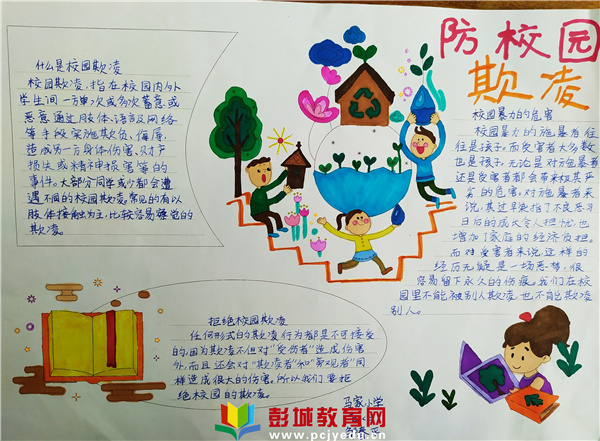 防校园
欺凌
什么是校园欺凌
校园欺凌,指在校园内外
学生间一方单次或多次蓄意或
恶意通过肢体、语言及网络
等手段实施欺负、侮辱,
造成另一方身体伤害、财产
损失或精神损害等的
事件。大部分同学或少都会遭
遇不同的校园欺凌,常见的有以
肢体接触为主,比较容易察觉的
欺凌。
校园暴力的危害
校园暴力的施暴者往
往是孩子,而受害者大多数
也是孩子,无论是对施暴者
还是受害者都会带来极其严
重的危害,对施暴者来
说,其过早染指了不良恶习
日后的成长令人担忧,也
增加了家庭的经济负担。
而对受害者来说,这样的
经历无疑是一场恶梦,很
容易留下永久的伤痕。我们在校
园里不能被别人欺凌,也不能欺凌
别人。
拒绝校园欺凌
任何形式的欺凌行为都是不可接受
的,因为欺凌不但对“受伤者”造成伤害
外,而且还会对“欺凌者”和“旁观者”同
样造成很大的伤害。所以我们要拒
绝校园的欺凌。
马家小学
彭城教育网
www.pcjyedu.cn